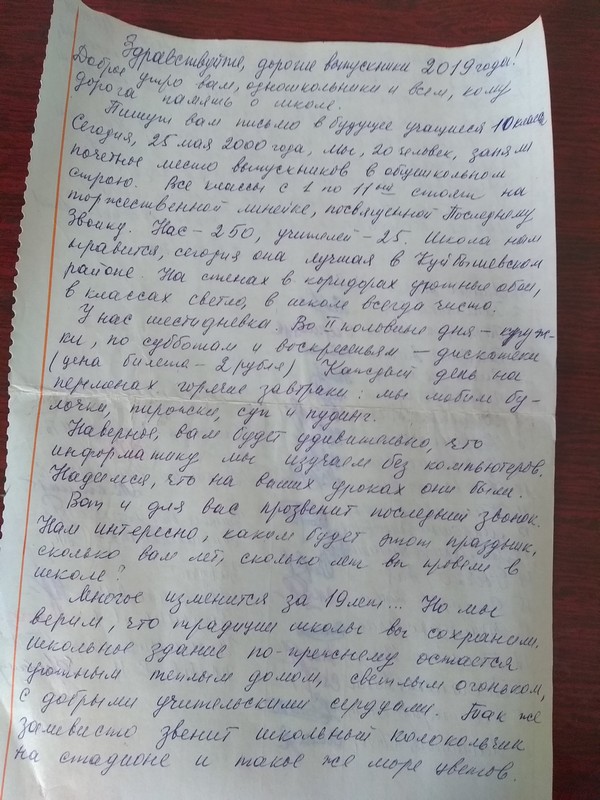 Здравствуйте, дорогие выпускники 2019 года!
Доброе утро вам, одношкольники и всем, кому
дорога память о школе.
Пишут вам письмо в будущее учащиеся 10 класса
Сегодня, 25 мая 2000 года, мы, 20 человек, заняли
почётные место выпускников в общешкольном
строю. Все классы с 1 по 11ый стоят на
торжественной линейке, посвященной Последнему
Звонку. Нас - 250, учителей - 25. Школа нам
нравится, сегодня она лучшая в Куйбышевском
районе. На стенах в коридорах уютные обои,
в классах светло, в школе всегда чисто.
У нас шестидневка. Во II половине дня - круж-
ки, по субботам и воскресеньям - дискотеки
(цена билета - 2 рубля) Каждый день на
переменах горячие завтраки: мы любим бу-
лочки, пирожки, суп и пудинг.
Наверное, вам будет удивительно, что
информатику мы изучаем без компьютеров.
Надеемся, что на ваших уроках они были.
Вот и для вас прозвенит последний звонок.
Нам интересно, каким будет этот праздник,
сколько вам лет, сколько лет вы провели в
школе?
Многое изменится за 19 лет... Но мы
верим, что традиции школы вы сохраним.
Школьное здание по-прежнему остается
уютным теплым домом, светлым огоньком,
с добрыми учительскими сердцами. Так же
заливисто звенит школьный колокольчик
на стадионе и такое же море цветов.